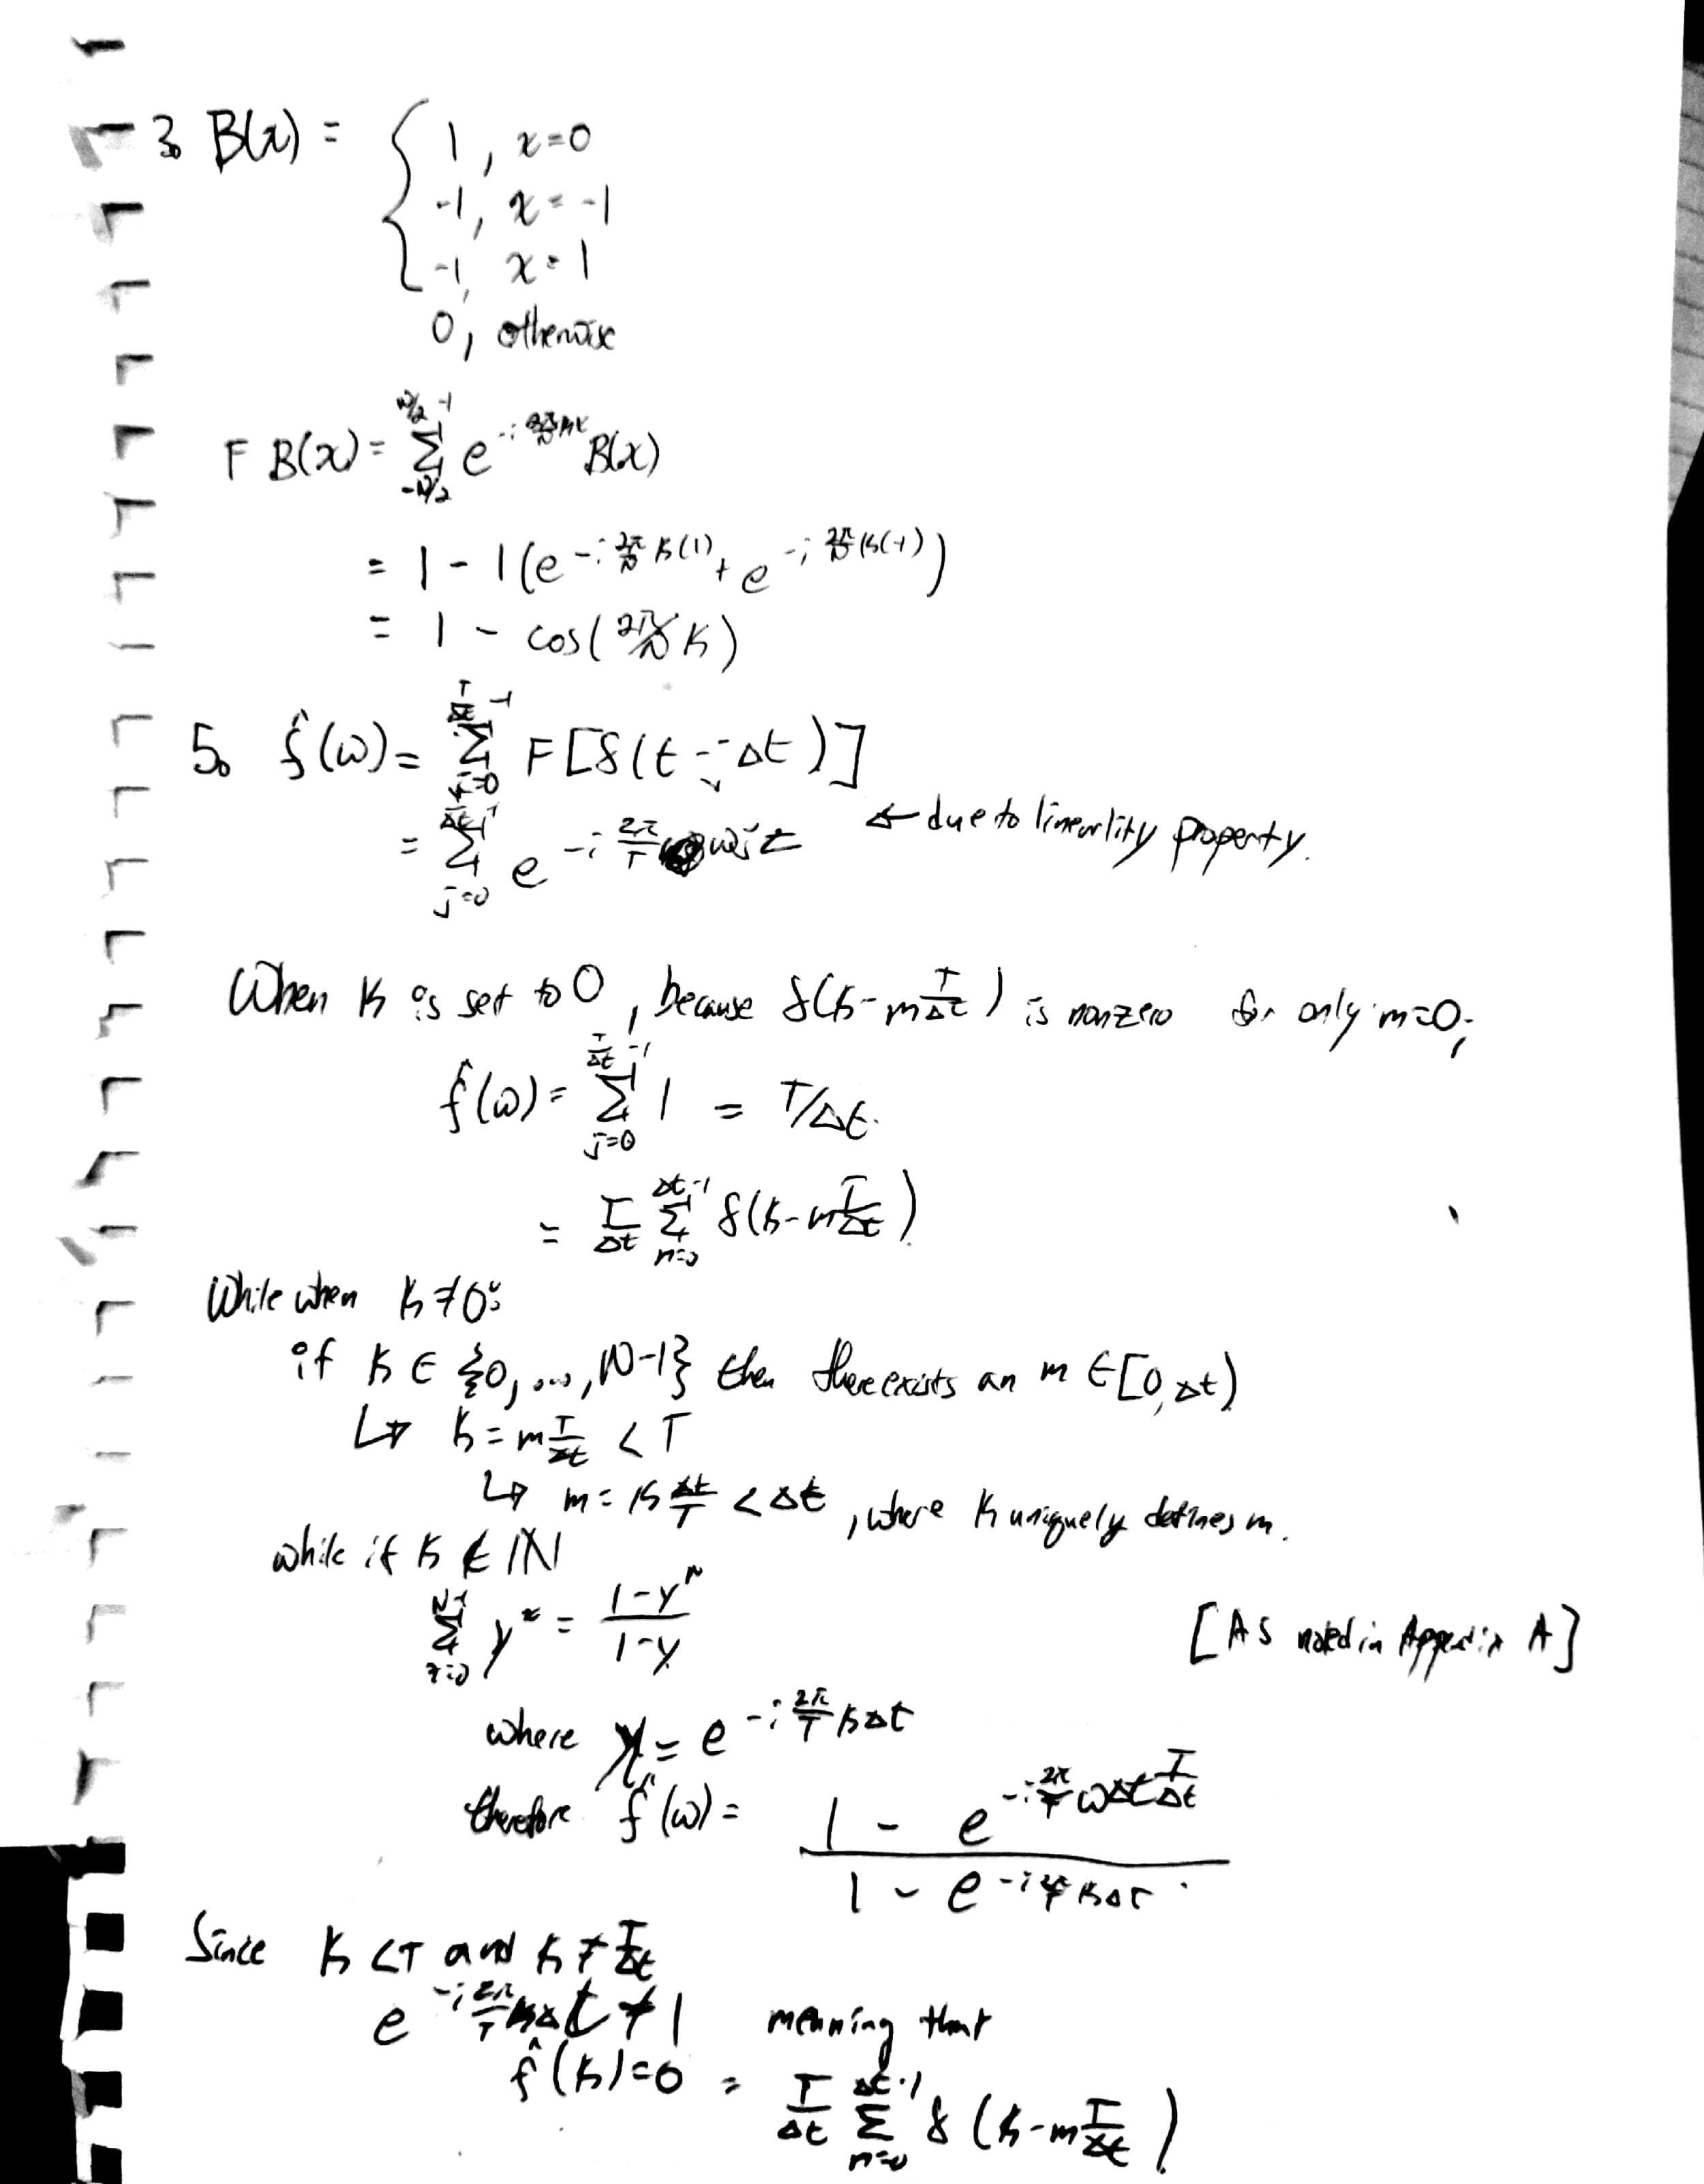 3. B(x) = { 1, x=0
-1, x=-1
-1, x=1
0, otherwise
F B(x) = Σ_{-N/2}^{N/2 -1} e^{-i 2π/N kx} B(x)
= 1 - 1(e^{-i 2π/N k(1)} + e^{-i 2π/N k(-1)})
= 1 - cos(2π/N k)
5. f̂(ω) = Σ_{j=0}^{T/Δt -1} F[δ(t - jΔt)]
= Σ_{j=0}^{T/Δt -1} e^{-i 2π/T ωjt} ← due to linearlity property.
When k is set to 0, because δ(k-m T/Δt) is nonzero for only m=0;
f̂(ω) = Σ_{j=0}^{T/Δt -1} 1 = T/Δt.
= T/Δt Σ_{m=0}^{Δt-1} δ(k-m T/Δt)
While when k≠0:
if k ∈ {0, ..., N-1} then there exists an m ∈ [0, Δt)
↳ k = m T/Δt < T
↳ m = k Δt/T < Δt, where k uniquely defines m.
while if k ∉ ℕ
Σ_{x=0}^{N-1} y^x = (1-y^N)/(1-y) [As noted in Appendix A]
where y = e^{-i 2π/T kΔt}
therefore f̂(ω) = (1 - e^{-i 2π/T ωΔt T/Δt})/(1 - e^{-i 2π/T kΔt}).
Since k < T and k ≠ T/Δt
e^{-i 2π/T kΔt} ≠ 1 meaning that
f̂(k)=0 = T/Δt Σ_{m=0}^{Δt-1} δ(k-m T/Δt)